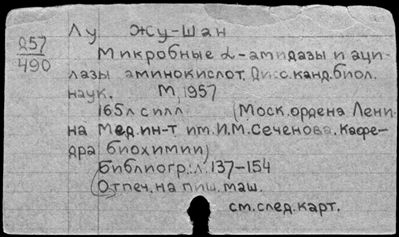 Лу Жу-Шан
Д57
490
Микробные L-амидазы и аци-
лазы аминокислот. Дисс. канд. биол.
наук. М, 1957
165 л с илл (Моск. ордена Лени-
на Мед. ин-т им. И.М. Сеченова. Кафе-
дра биохимии)
Библиогр.: л. 137-154
(Отпеч. на пиш. маш.
см. след. карт.